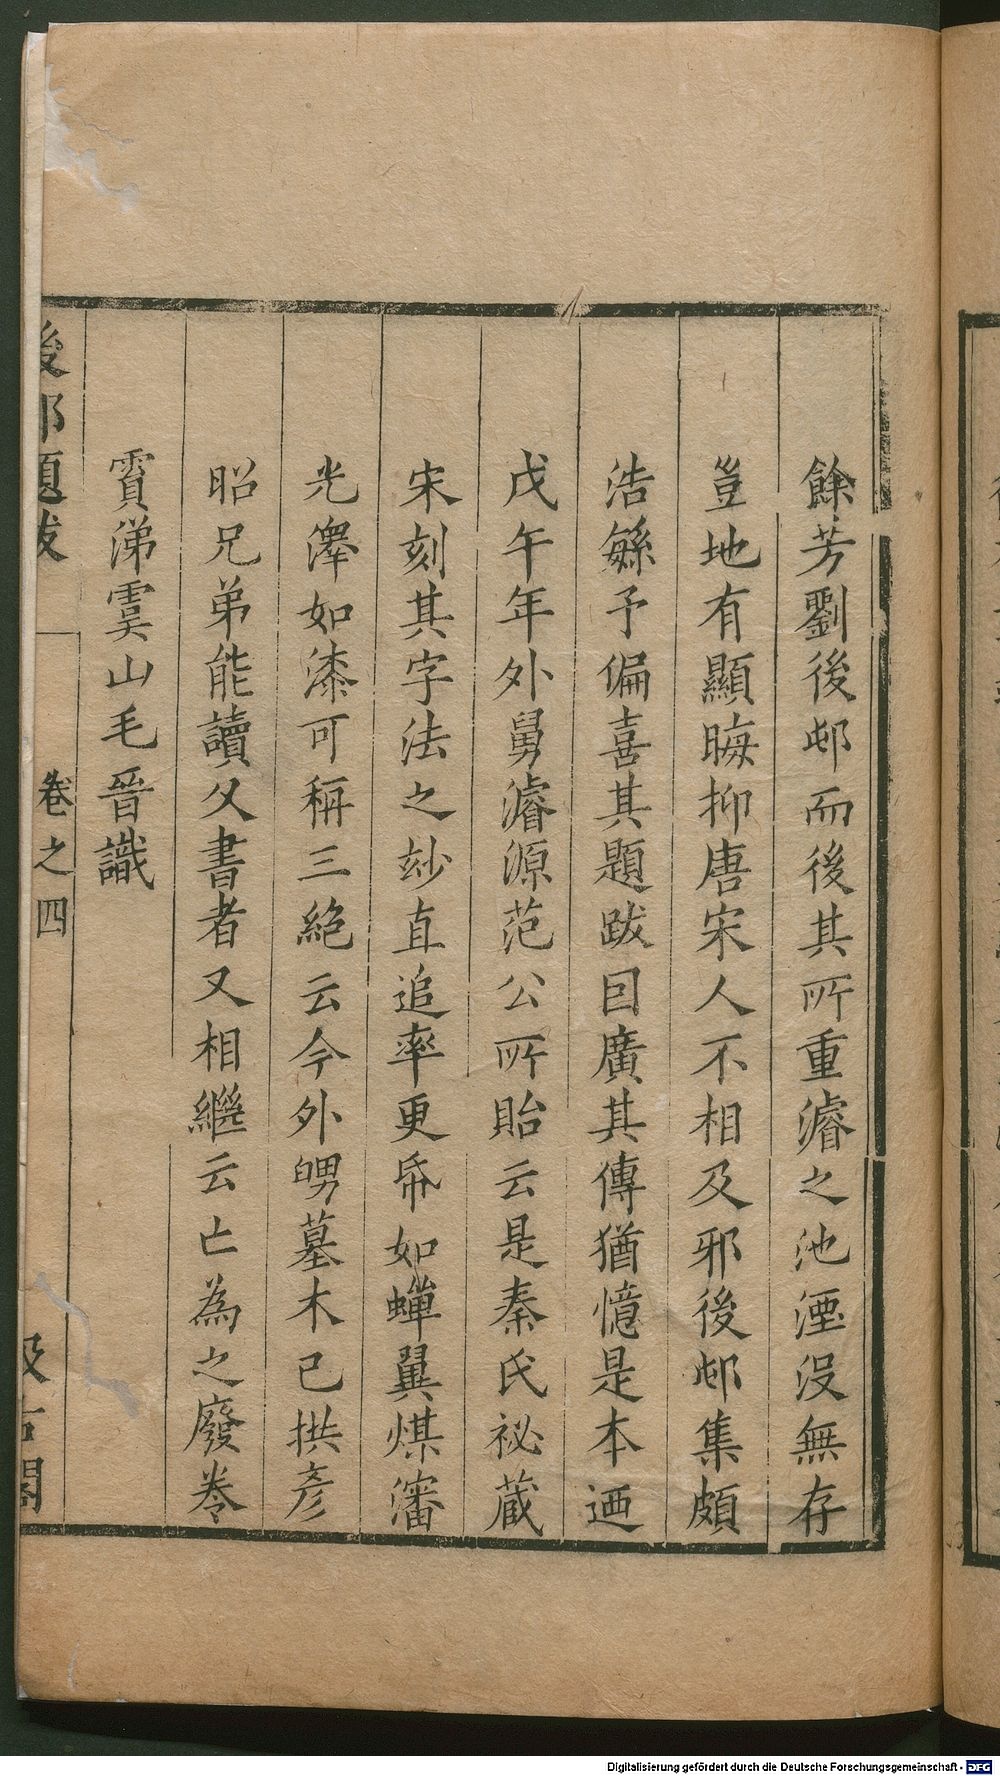 餘芳劉後邨而後其所重濬之池湮沒無存
豈地有顯晦抑唐宋人不相及邪後邨集頗
浩繇予偏喜其題跋因廣其傳猶憶是本迺
戊午年外舅濬源范公所貽云是秦氏祕蔵
宋刻其字法之玅直追率更㡀如蟬翼煤瀋
光澤如漆可稱三絕云今外甥墓木已拱彥
昭兄弟能讀父書者又相繼云亡為之廢卷
霣涕虞山毛晉識
後邨題跋
卷之四
汲古閣
Digitalisierung gefördert durch die Deutsche Forschungsgemeinschaft - DFG